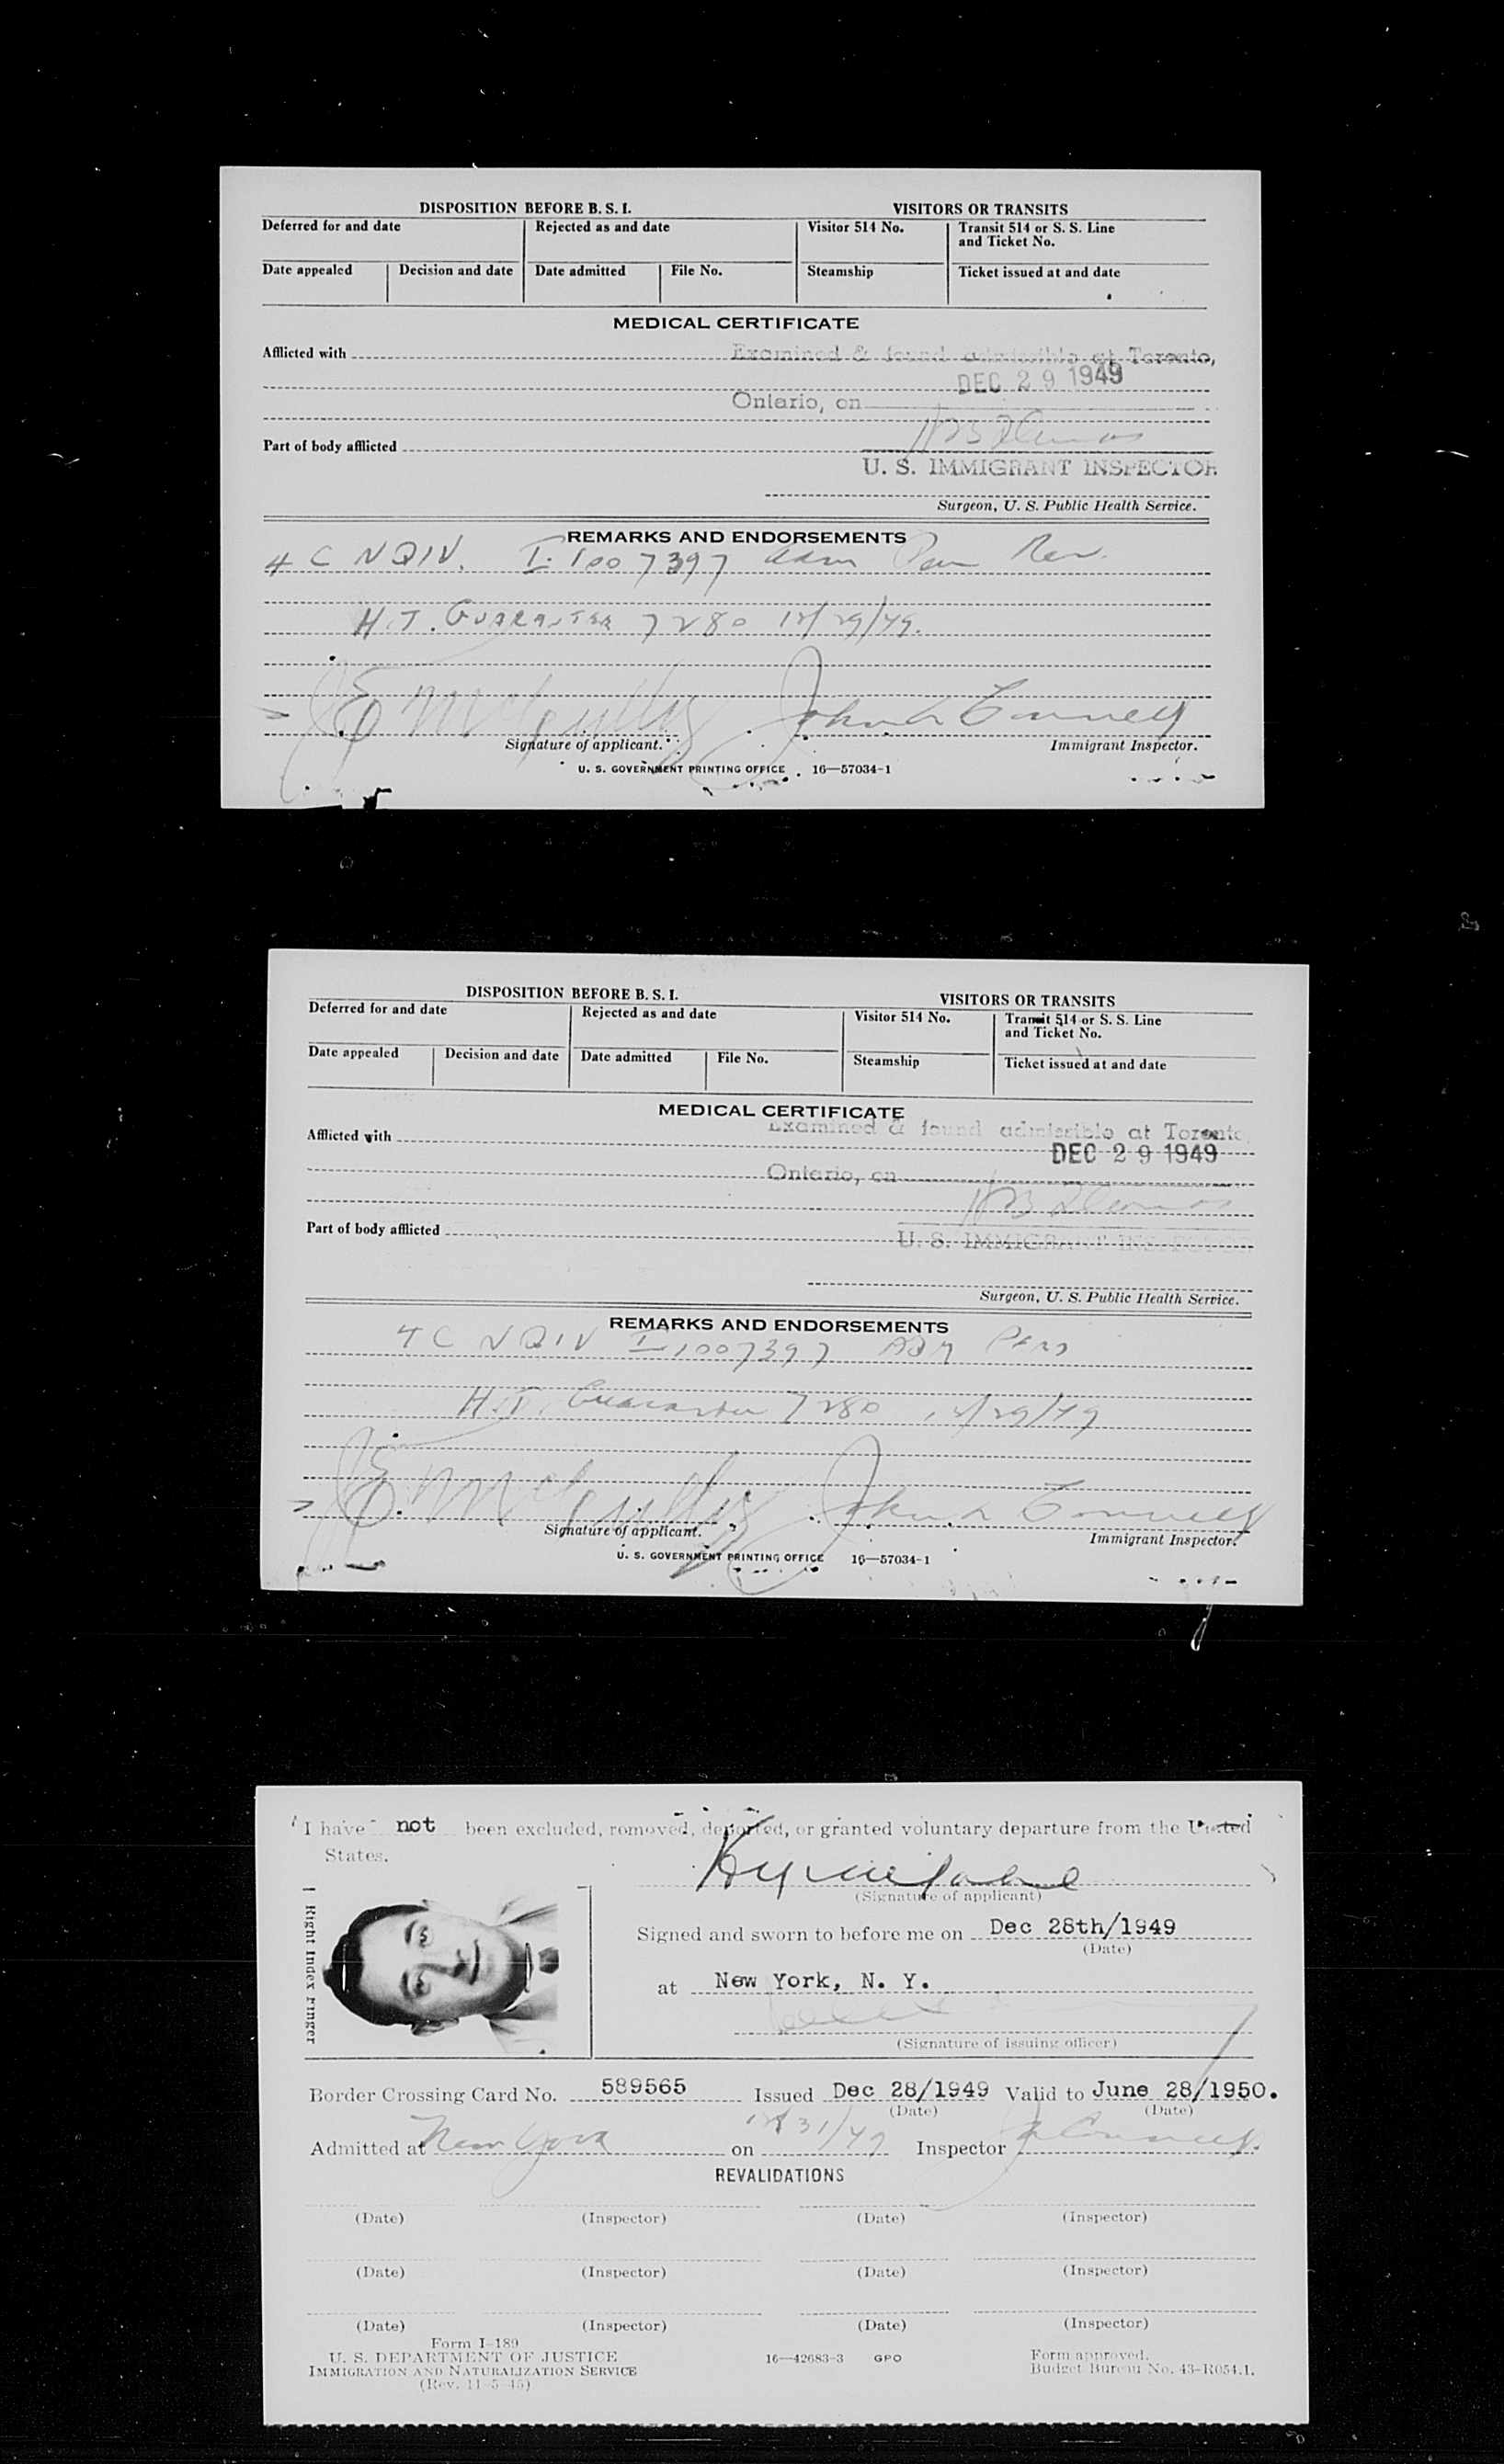 DISPOSITION BEFORE B. S. I.
VISITORS OR TRANSITS
Deferred for and date
Rejected as and date
Visitor 514 No.
Transit 514 or S. S. Line
and Ticket No.
Date appealed
Decision and date
Date admitted
File No.
Steamship
Ticket issued at and date
MEDICAL CERTIFICATE
Afflicted with
Examined & found admissible at Toronto,
DEC 29 1949
Ontario, on
Part of body afflicted
U. S. IMMIGRANT INSPECTOR
Surgeon, U. S. Public Health Service.
REMARKS AND ENDORSEMENTS
4 C NQIV. I-1007397 adm
H.T. 7280 12/29/49.
John L Connell
Signature of applicant.
Immigrant Inspector.
U. S. GOVERNMENT PRINTING OFFICE 16—57034-1
DISPOSITION BEFORE B. S. I.
VISITORS OR TRANSITS
Deferred for and date
Rejected as and date
Visitor 514 No.
Transit 514 or S. S. Line
and Ticket No.
Date appealed
Decision and date
Date admitted
File No.
Steamship
Ticket issued at and date
MEDICAL CERTIFICATE
Afflicted with
Examined & found admissible at Toronto
DEC 29 1949
Ontario, on
Part of body afflicted
U. S. IMMIGRANT INSPECTOR
Surgeon, U. S. Public Health Service.
REMARKS AND ENDORSEMENTS
4 C NQIV I-1007397 ADM
H.T. 7280 12/29/49
John L Connell
Signature of applicant.
Immigrant Inspector.
U. S. GOVERNMENT PRINTING OFFICE 16—57034-1
I have not been excluded, removed, deported, or granted voluntary departure from the United
States.
(Signature of applicant)
Right Index Finger
Signed and sworn to before me on Dec 28th/1949
(Date)
at New York, N. Y.
(Signature of issuing officer)
Border Crossing Card No. 589565 Issued Dec 28/1949 Valid to June 28/1950.
(Date) (Date)
Admitted at New York on 12/31/49 Inspector
REVALIDATIONS
(Date) (Inspector) (Date) (Inspector)
(Date) (Inspector) (Date) (Inspector)
(Date) (Inspector) (Date) (Inspector)
Form I-189
U. S. DEPARTMENT OF JUSTICE
IMMIGRATION AND NATURALIZATION SERVICE
(Rev. 11-5-45)
16—42683-3 GPO
Form approved.
Budget Bureau No. 43-R054.1.